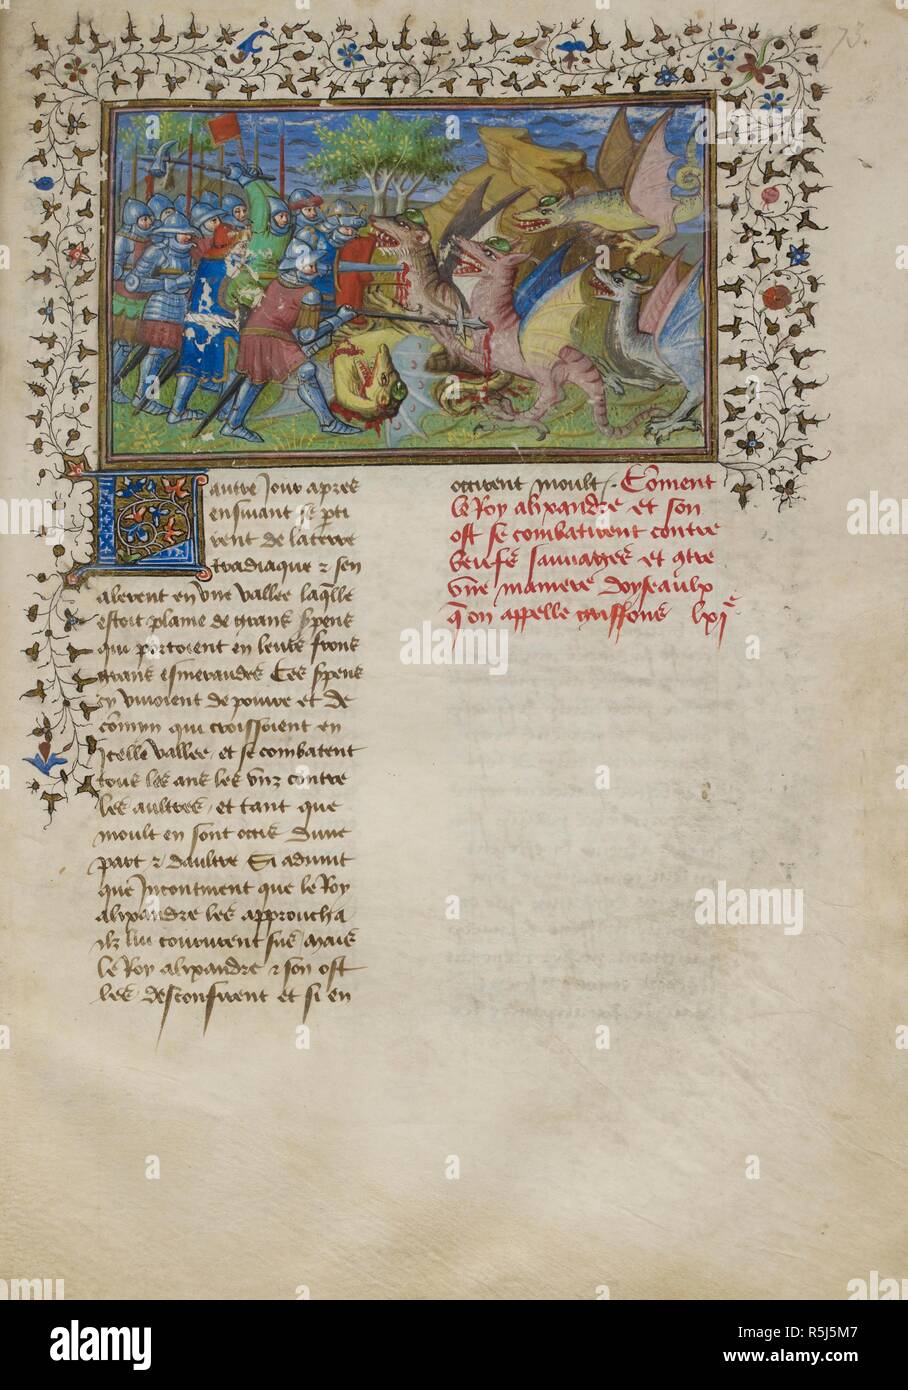 73.
Lautre Jour apres
ensuiuant se parti
rent de la terre
tradiaque & sen
alerent en vne vallee laqlle
estoit plaine de grans spens
qui portoient en leurs frons
grans esmeraudes Ces spens
cy viuoient de poiure et de
comin qui croissoient en
Icelle vallee et se combatent
tous les ans les vnz contre
les aultres / et tant que
moult en sont occis dune
part & daultre Si aduint
que Incontinent que le Roy
alixandre les approucha
Ilz lui coururent sus / mais
le Roy alixandre & son ost
les desconfirent et si en
occirent moult. Coment
le Roy alixandre et son
ost se combatirent contre
beufs sauuages et gtre
vne maniere doyseaulx
q on appelle griffons lxi
alamy
R5J5M7
www.alamy.com